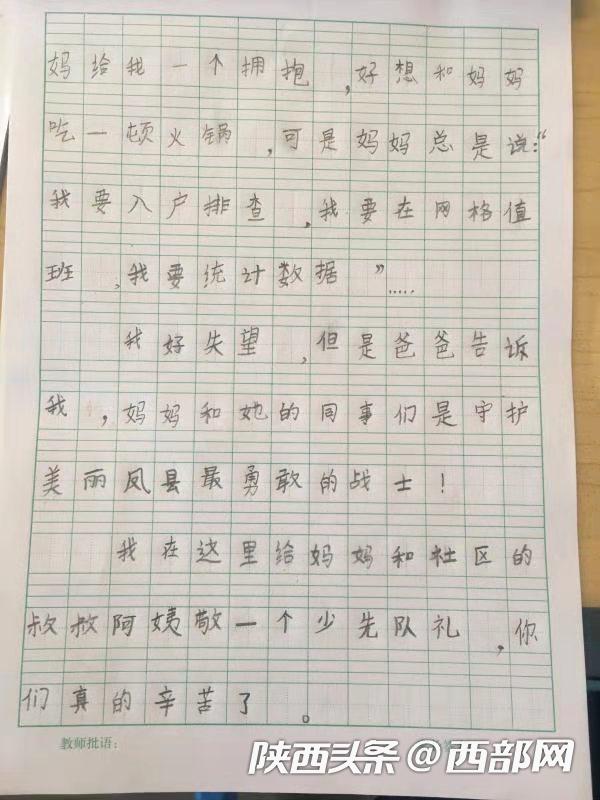 妈给我一个拥抱,好想和妈妈
吃一顿火锅,可是妈妈总是说:“
我要入户排查,我要在网格值
班,我要统计数据”……
我好失望,但是爸爸告诉
我,妈妈和她的同事们是守护
美丽凤县最勇敢的战士!
我在这里给妈妈和社区的
叔叔阿姨敬一个少先队礼,你
们真的辛苦了。
教师批语:
陕西头条@西部网